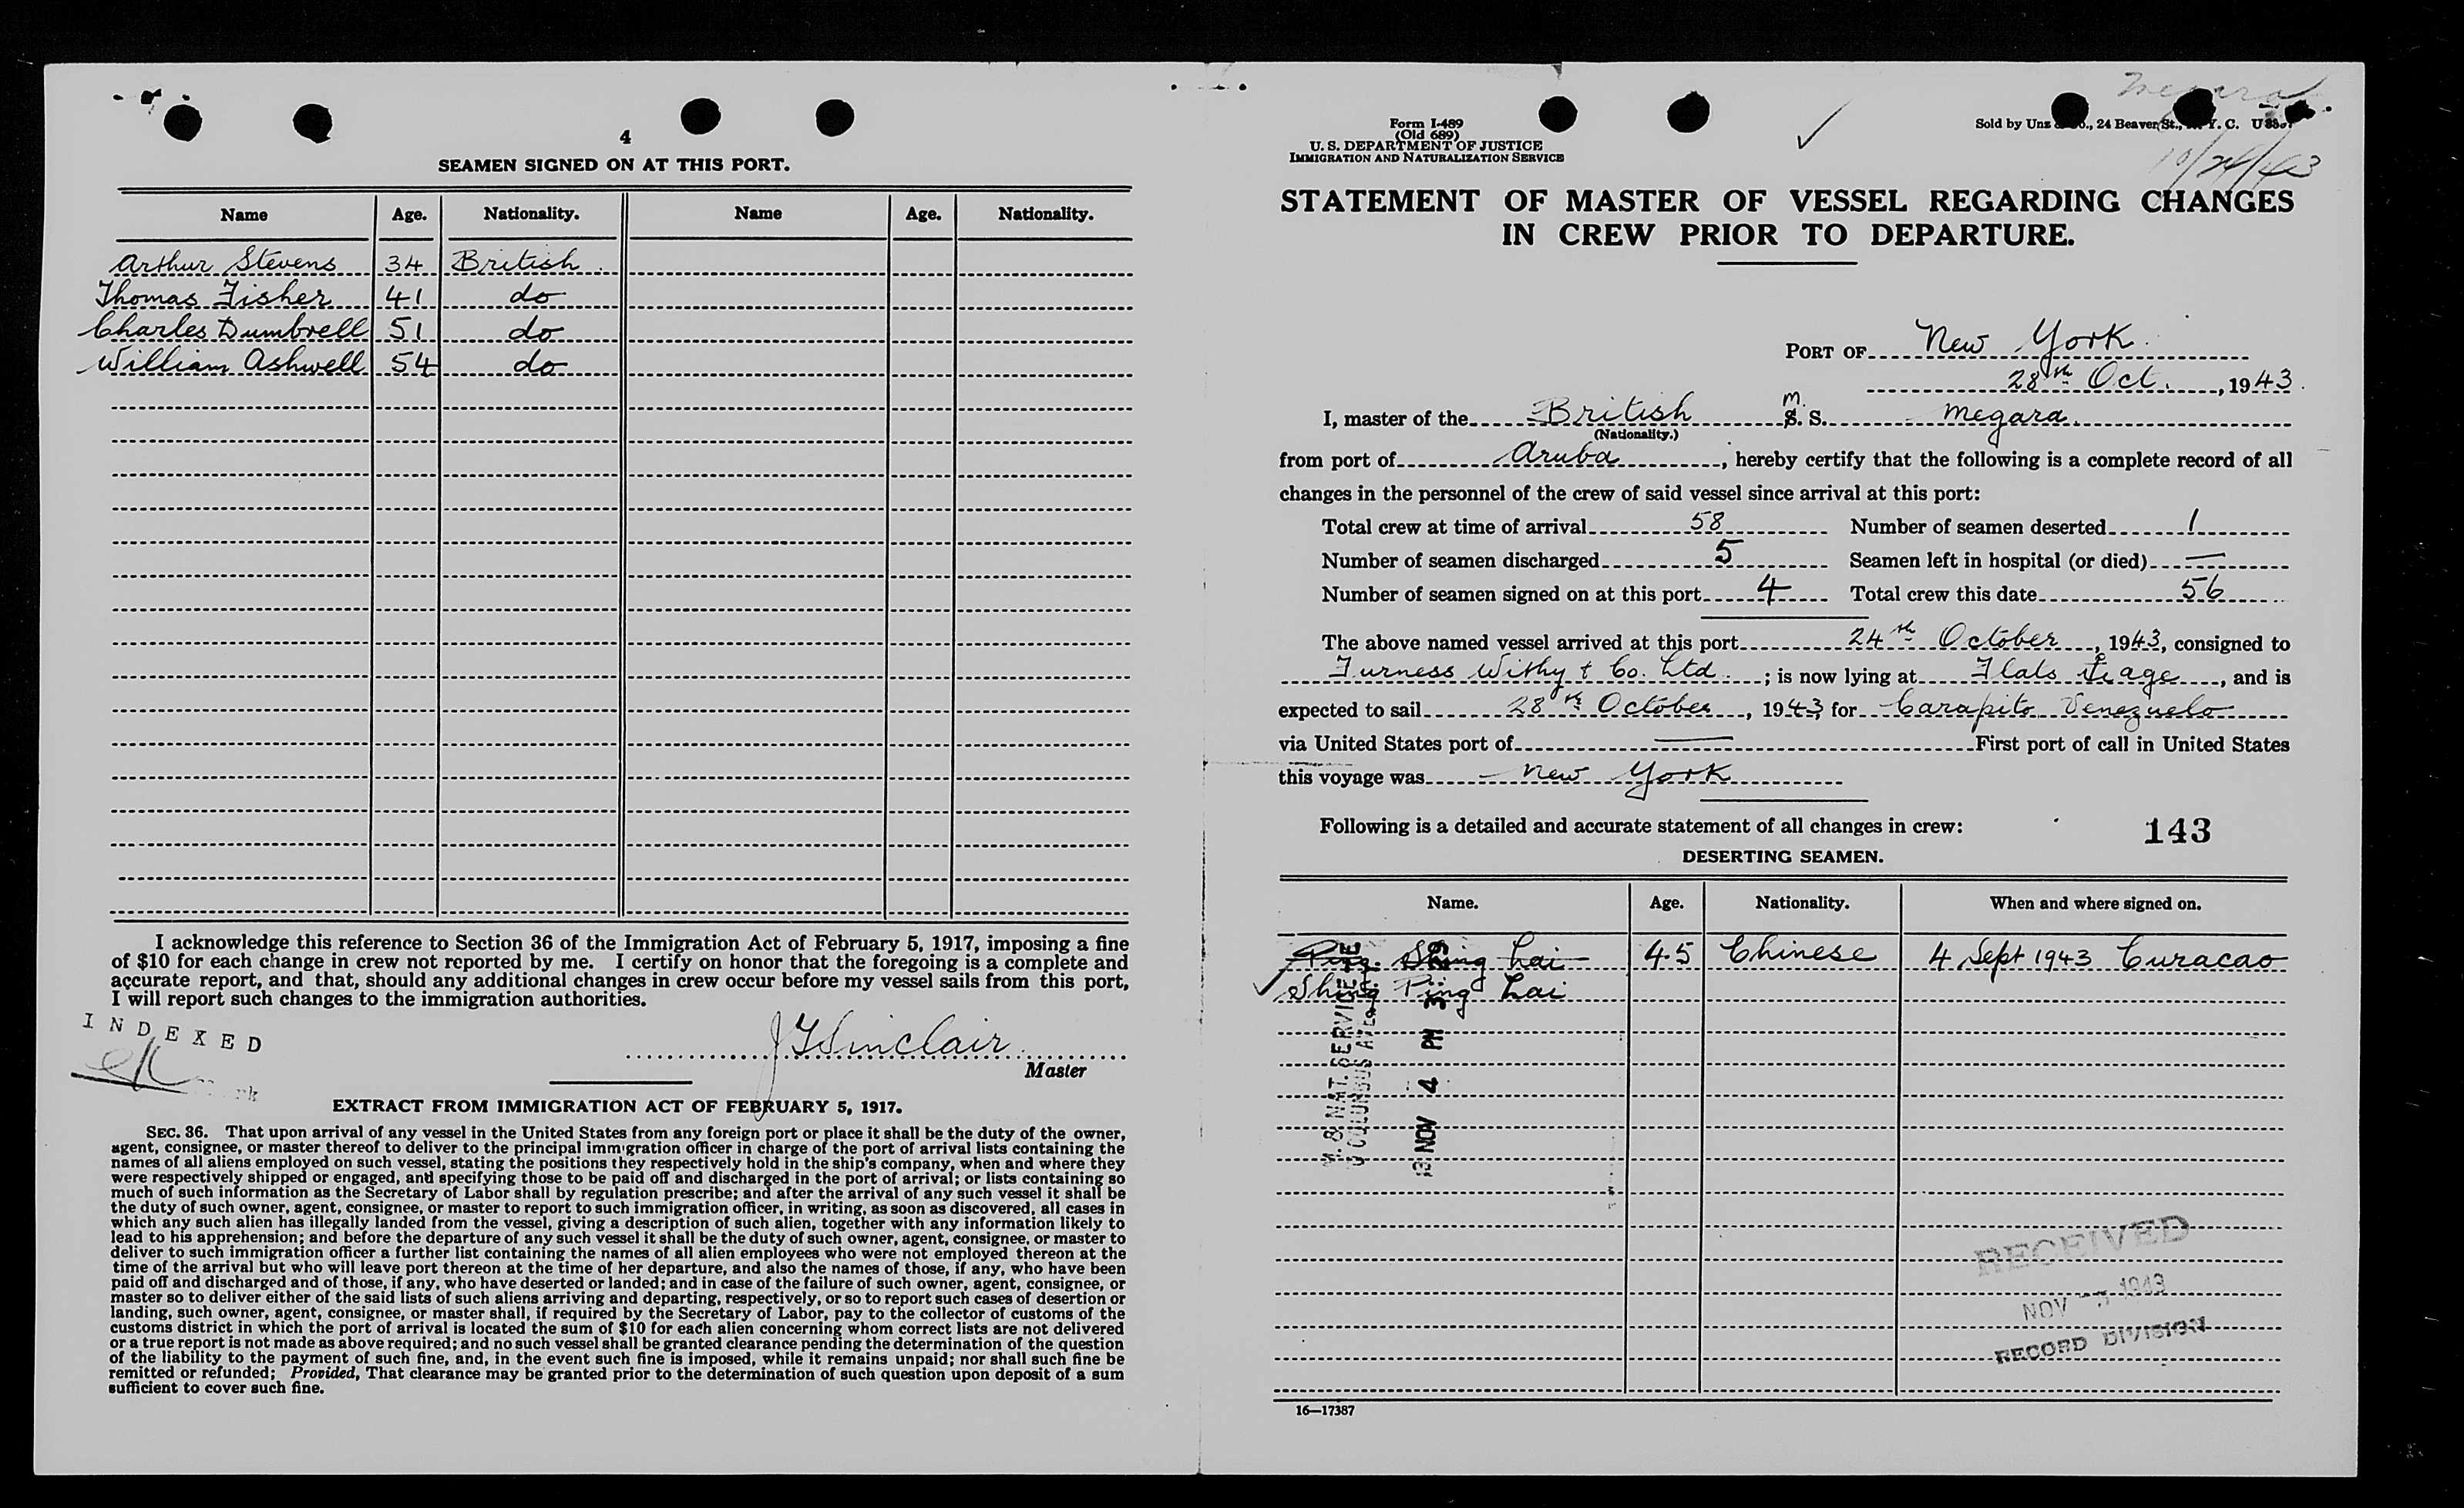 4
SEAMEN SIGNED ON AT THIS PORT.
Name Age. Nationality. Name Age. Nationality.
Arthur Stevens 34 British
Thomas Fisher 41 do
Charles Dumbrell 51 do
William Ashwell 54 do
I acknowledge this reference to Section 36 of the Immigration Act of February 5, 1917, imposing a fine
of $10 for each change in crew not reported by me. I certify on honor that the foregoing is a complete and
accurate report, and that, should any additional changes in crew occur before my vessel sails from this port,
I will report such changes to the immigration authorities.
INDEXED
J Sinclair
Master
EXTRACT FROM IMMIGRATION ACT OF FEBRUARY 5, 1917.
SEC. 36. That upon arrival of any vessel in the United States from any foreign port or place it shall be the duty of the owner,
agent, consignee, or master thereof to deliver to the principal immigration officer in charge of the port of arrival lists containing the
names of all aliens employed on such vessel, stating the positions they respectively hold in the ship's company, when and where they
were respectively shipped or engaged, and specifying those to be paid off and discharged in the port of arrival; or lists containing so
much of such information as the Secretary of Labor shall by regulation prescribe; and after the arrival of any such vessel it shall be
the duty of such owner, agent, consignee, or master to report to such immigration officer, in writing, as soon as discovered, all cases in
which any such alien has illegally landed from the vessel, giving a description of such alien, together with any information likely to
lead to his apprehension; and before the departure of any such vessel it shall be the duty of such owner, agent, consignee, or master to
deliver to such immigration officer a further list containing the names of all alien employees who were not employed thereon at the
time of the arrival but who will leave port thereon at the time of her departure, and also the names of those, if any, who have been
paid off and discharged and of those, if any, who have deserted or landed; and in case of the failure of such owner, agent, consignee, or
master so to deliver either of the said lists of such aliens arriving and departing, respectively, or so to report such cases of desertion or
landing, such owner, agent, consignee, or master shall, if required by the Secretary of Labor, pay to the collector of customs of the
customs district in which the port of arrival is located the sum of $10 for each alien concerning whom correct lists are not delivered
or a true report is not made as above required; and no such vessel shall be granted clearance pending the determination of the question
of the liability to the payment of such fine, and, in the event such fine is imposed, while it remains unpaid; nor shall such fine be
remitted or refunded; Provided, That clearance may be granted prior to the determination of such question upon deposit of a sum
sufficient to cover such fine.
Form I-489
(Old 689)
U. S. DEPARTMENT OF JUSTICE
IMMIGRATION AND NATURALIZATION SERVICE
Megara
Sold by Unz & Co., 24 Beaver St., N. Y. C.
10/24/43
STATEMENT OF MASTER OF VESSEL REGARDING CHANGES
IN CREW PRIOR TO DEPARTURE.
PORT OF New York
28th Oct., 1943.
I, master of the British M. S. Megara
(Nationality.)
from port of Aruba, hereby certify that the following is a complete record of all
changes in the personnel of the crew of said vessel since arrival at this port:
Total crew at time of arrival 58 Number of seamen deserted 1
Number of seamen discharged 5 Seamen left in hospital (or died) —
Number of seamen signed on at this port 4 Total crew this date 56
The above named vessel arrived at this port 24th October, 1943, consigned to
Furness Withy & Co. Ltd.; is now lying at Flats, and is
expected to sail 28th October, 1943 for Carapito Venezuelo
via United States port of — First port of call in United States
this voyage was New York
Following is a detailed and accurate statement of all changes in crew: 143
DESERTING SEAMEN.
Name. Age. Nationality. When and where signed on.
Ping Shing Lai 45 Chinese 4 Sept 1943 Curacao
Shing Ping Lai
NAT. SERVICE
COLUMBUS AVE
NOV 4 PM 3
RECEIVED
NOV 1943
RECORD DIVISION
16—17387